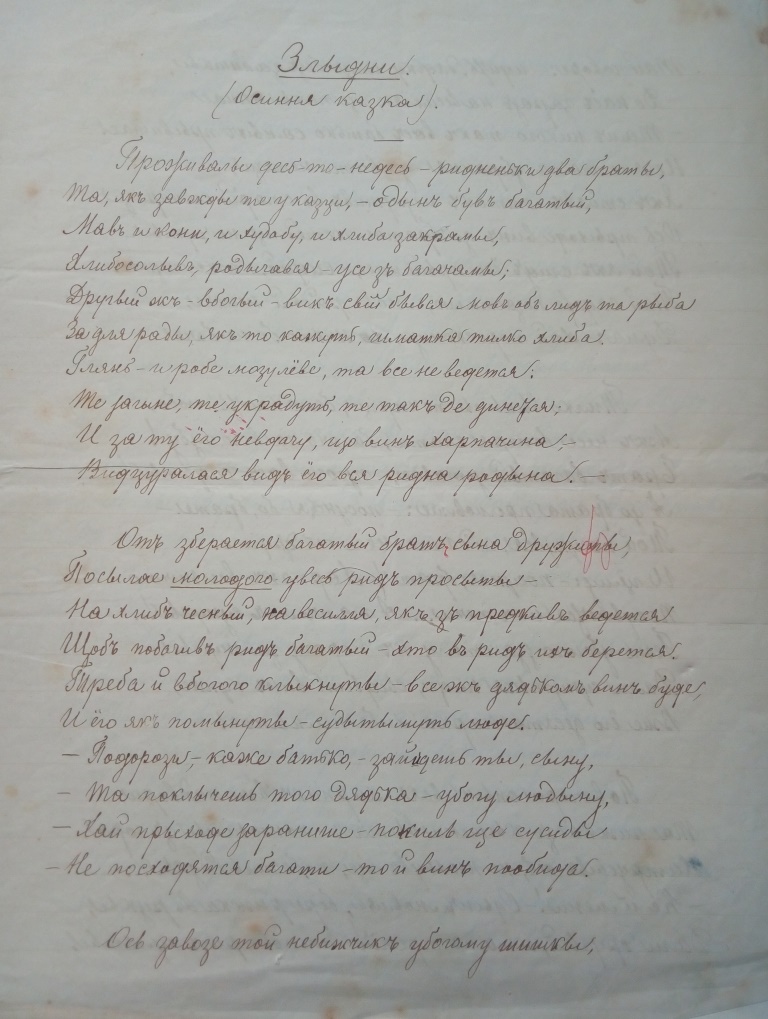 Злыдни.
(Осиння казка).
Проживалы десь-то-недесь - ридненьки два браты,
Та, якъ завжды те у казци, - одынъ бувъ багатый,
Мавъ и кони, и худобу, и хлиба закрамы,
Хлибосолывъ, родычався - усе зъ багачамы;
Другый жъ - вбогый - викъ свій бывся мовъ объ лидъ та рыба
Задля рады, якъ то кажуть, шматка тилко хлиба.
Глянь - и робе мозулёве, та все не ведется:
Те загыне, те украдуть, те такъ де динется;
И за ту ёго невдачу, що винъ харпачина, -
Видцуралася видъ ёго вся ридна родына. -
Отъ зберается багатый братъ сына дружыты,
Посылае молодого увесь ридъ просыты -
На хлибъ чесный, на весилля, якъ зъ предкивъ ведется
Щобъ побачивъ ридъ багатый - хто въ ридъ ихъ берется.
Треба й вбогого клыкнуты - все жъ дядькомъ винъ буде,
И ёго якъ помынуты - судытымуть люде.
- Подорози, - каже батько, - зайдешь ты, сыну,
- Та поклычешь того дядька - убогу людыну,
- Хай прыходе заранише - покиль ще сусиды
- Не посходятся багати - то й винъ пообида.
Ось завозе той небижчикъ убогому шишкы,